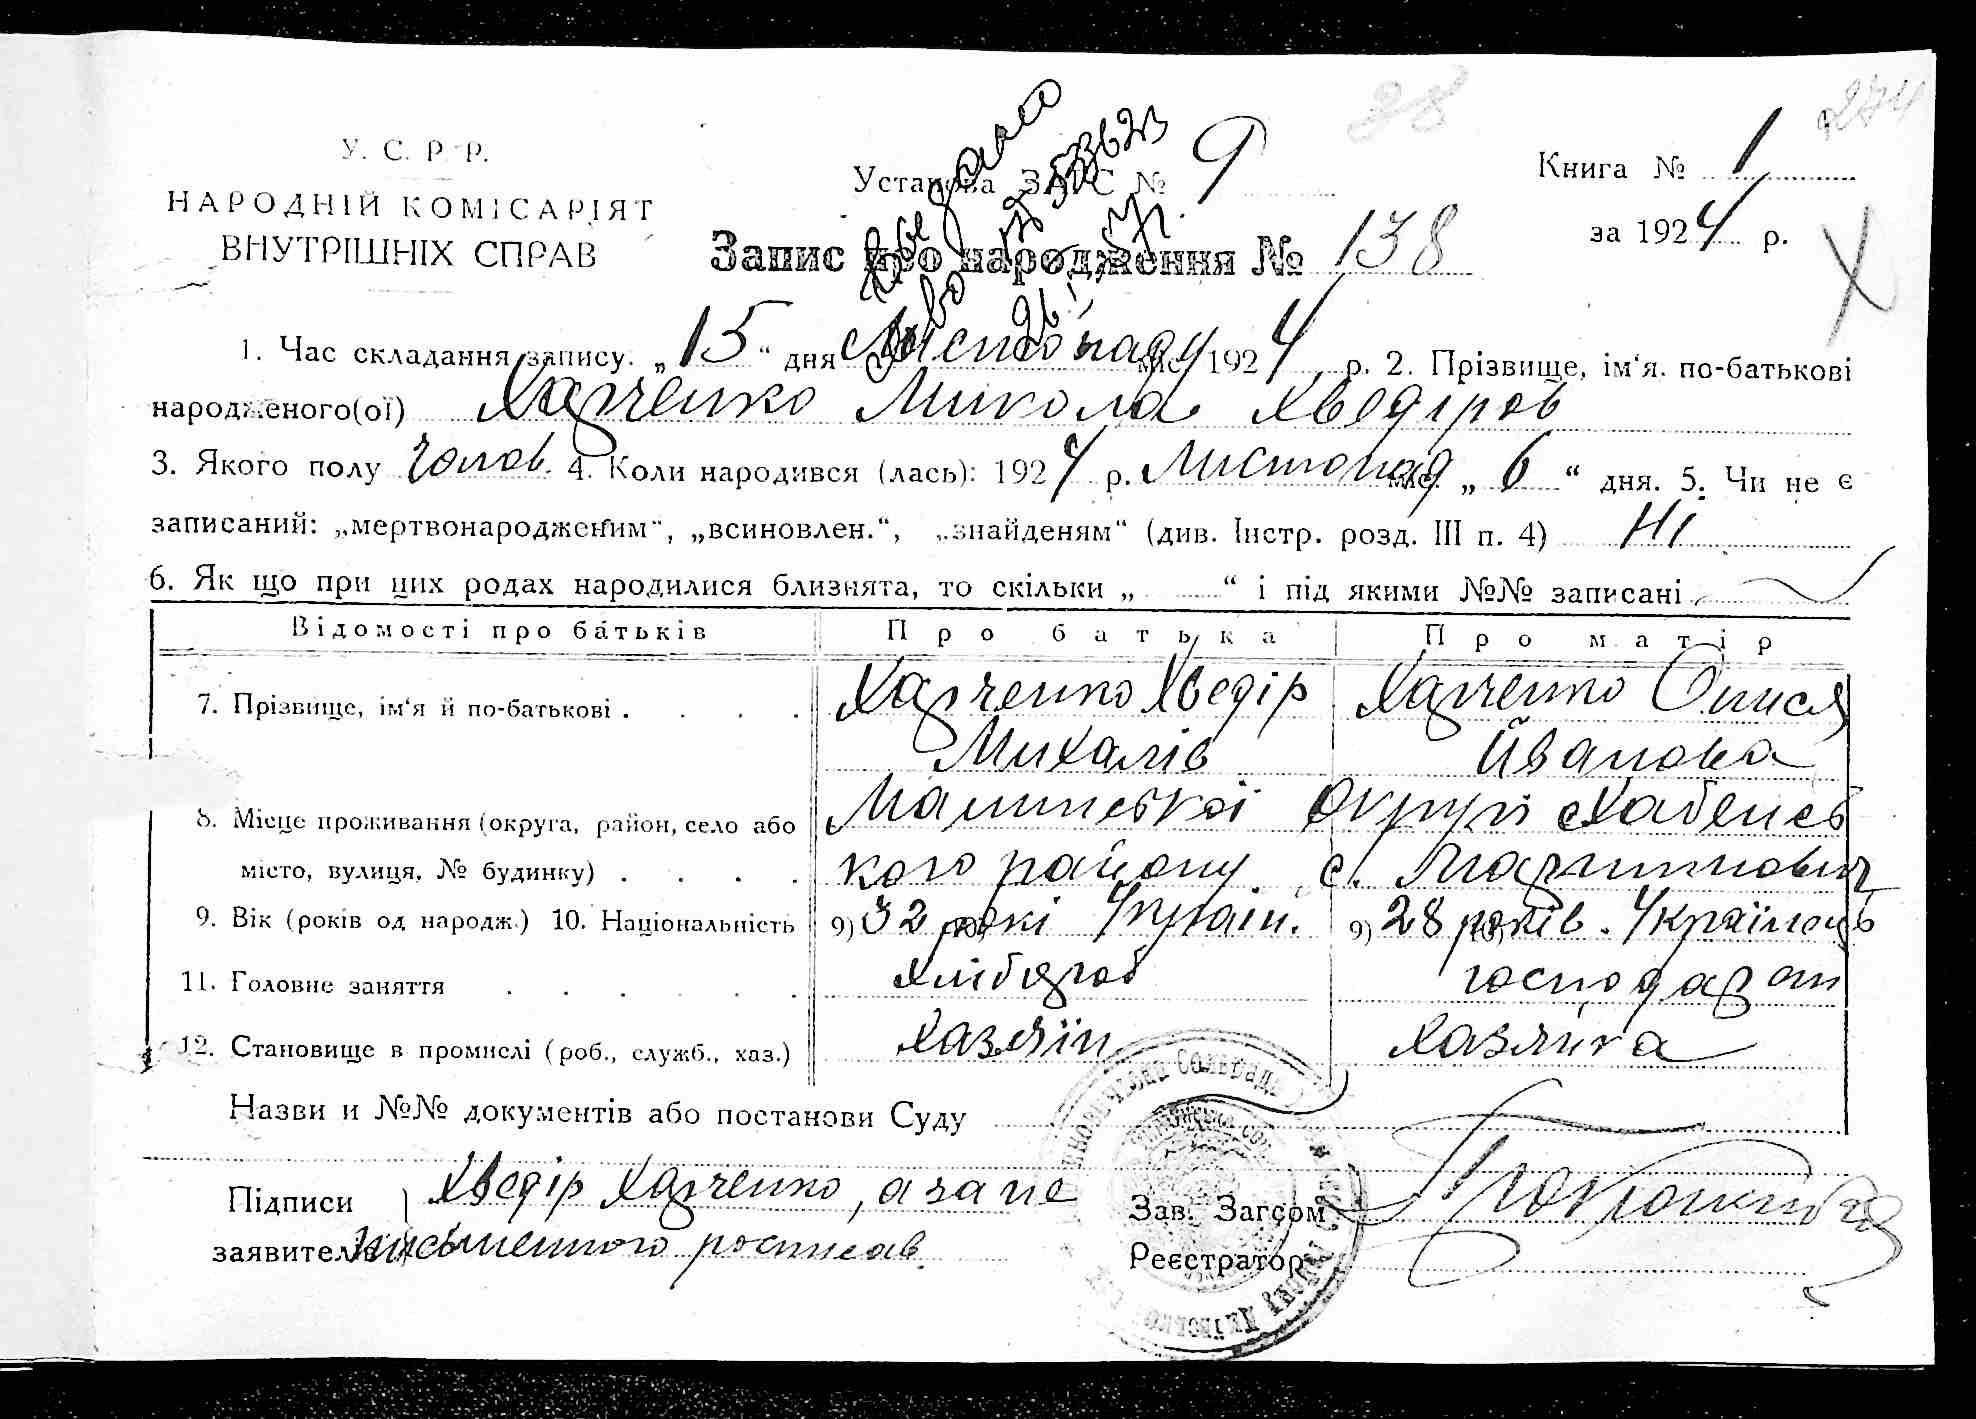 274
38
У. С. Р. Р.
НАРОДНІЙ КОМІСАРІЯТ
ВНУТРІШНІХ СПРАВ
Установа ЗАГС № 9
Книга № 1
за 1924 р.
Запис про народження № 138
1. Час складання запису: „15“ дня Листопаду міс. 1924 р. 2. Прізвище, ім‘я. по-батькові
народженого(ої) Харченко Микола Хведіров
3. Якого полу чолов. 4. Коли народився (лась): 1924 р. Листопад міс. „6“ дня. 5. Чи не є
записаний: „мертвонародженим“, „всиновлен.“, „знайденям“ (див. Інстр. розд. III п. 4) Ні
6. Як що при цих родах народилися близнята, то скільки „ “ і під якими №№ записані
Відомості про батьків Про батька Про матір
7. Прізвище, ім‘я й по-батькові . . . . Харченко Хведір Харченко Онися
Михалів Йванова
8. Місце проживання (округа, район, село або Малинської Округи Хабенсь
місто, вулиця, № будинку) . . . . кого району с. Мартинович
9. Вік (років од народж.) 10. Національність 9) 32 рокі 10) Украін. 9) 28 років. 10) Українець
11. Головне заняття . . . . . Хлібороб господарст
12. Становище в промислі (роб., служб., хаз.) Хазяїн Хазяйка
Назви и №№ документів або постанови Суду
Підписи Хведір Харченко, а за не
заявителів письменного росписав.
Зав. Загсом
Реєстратор